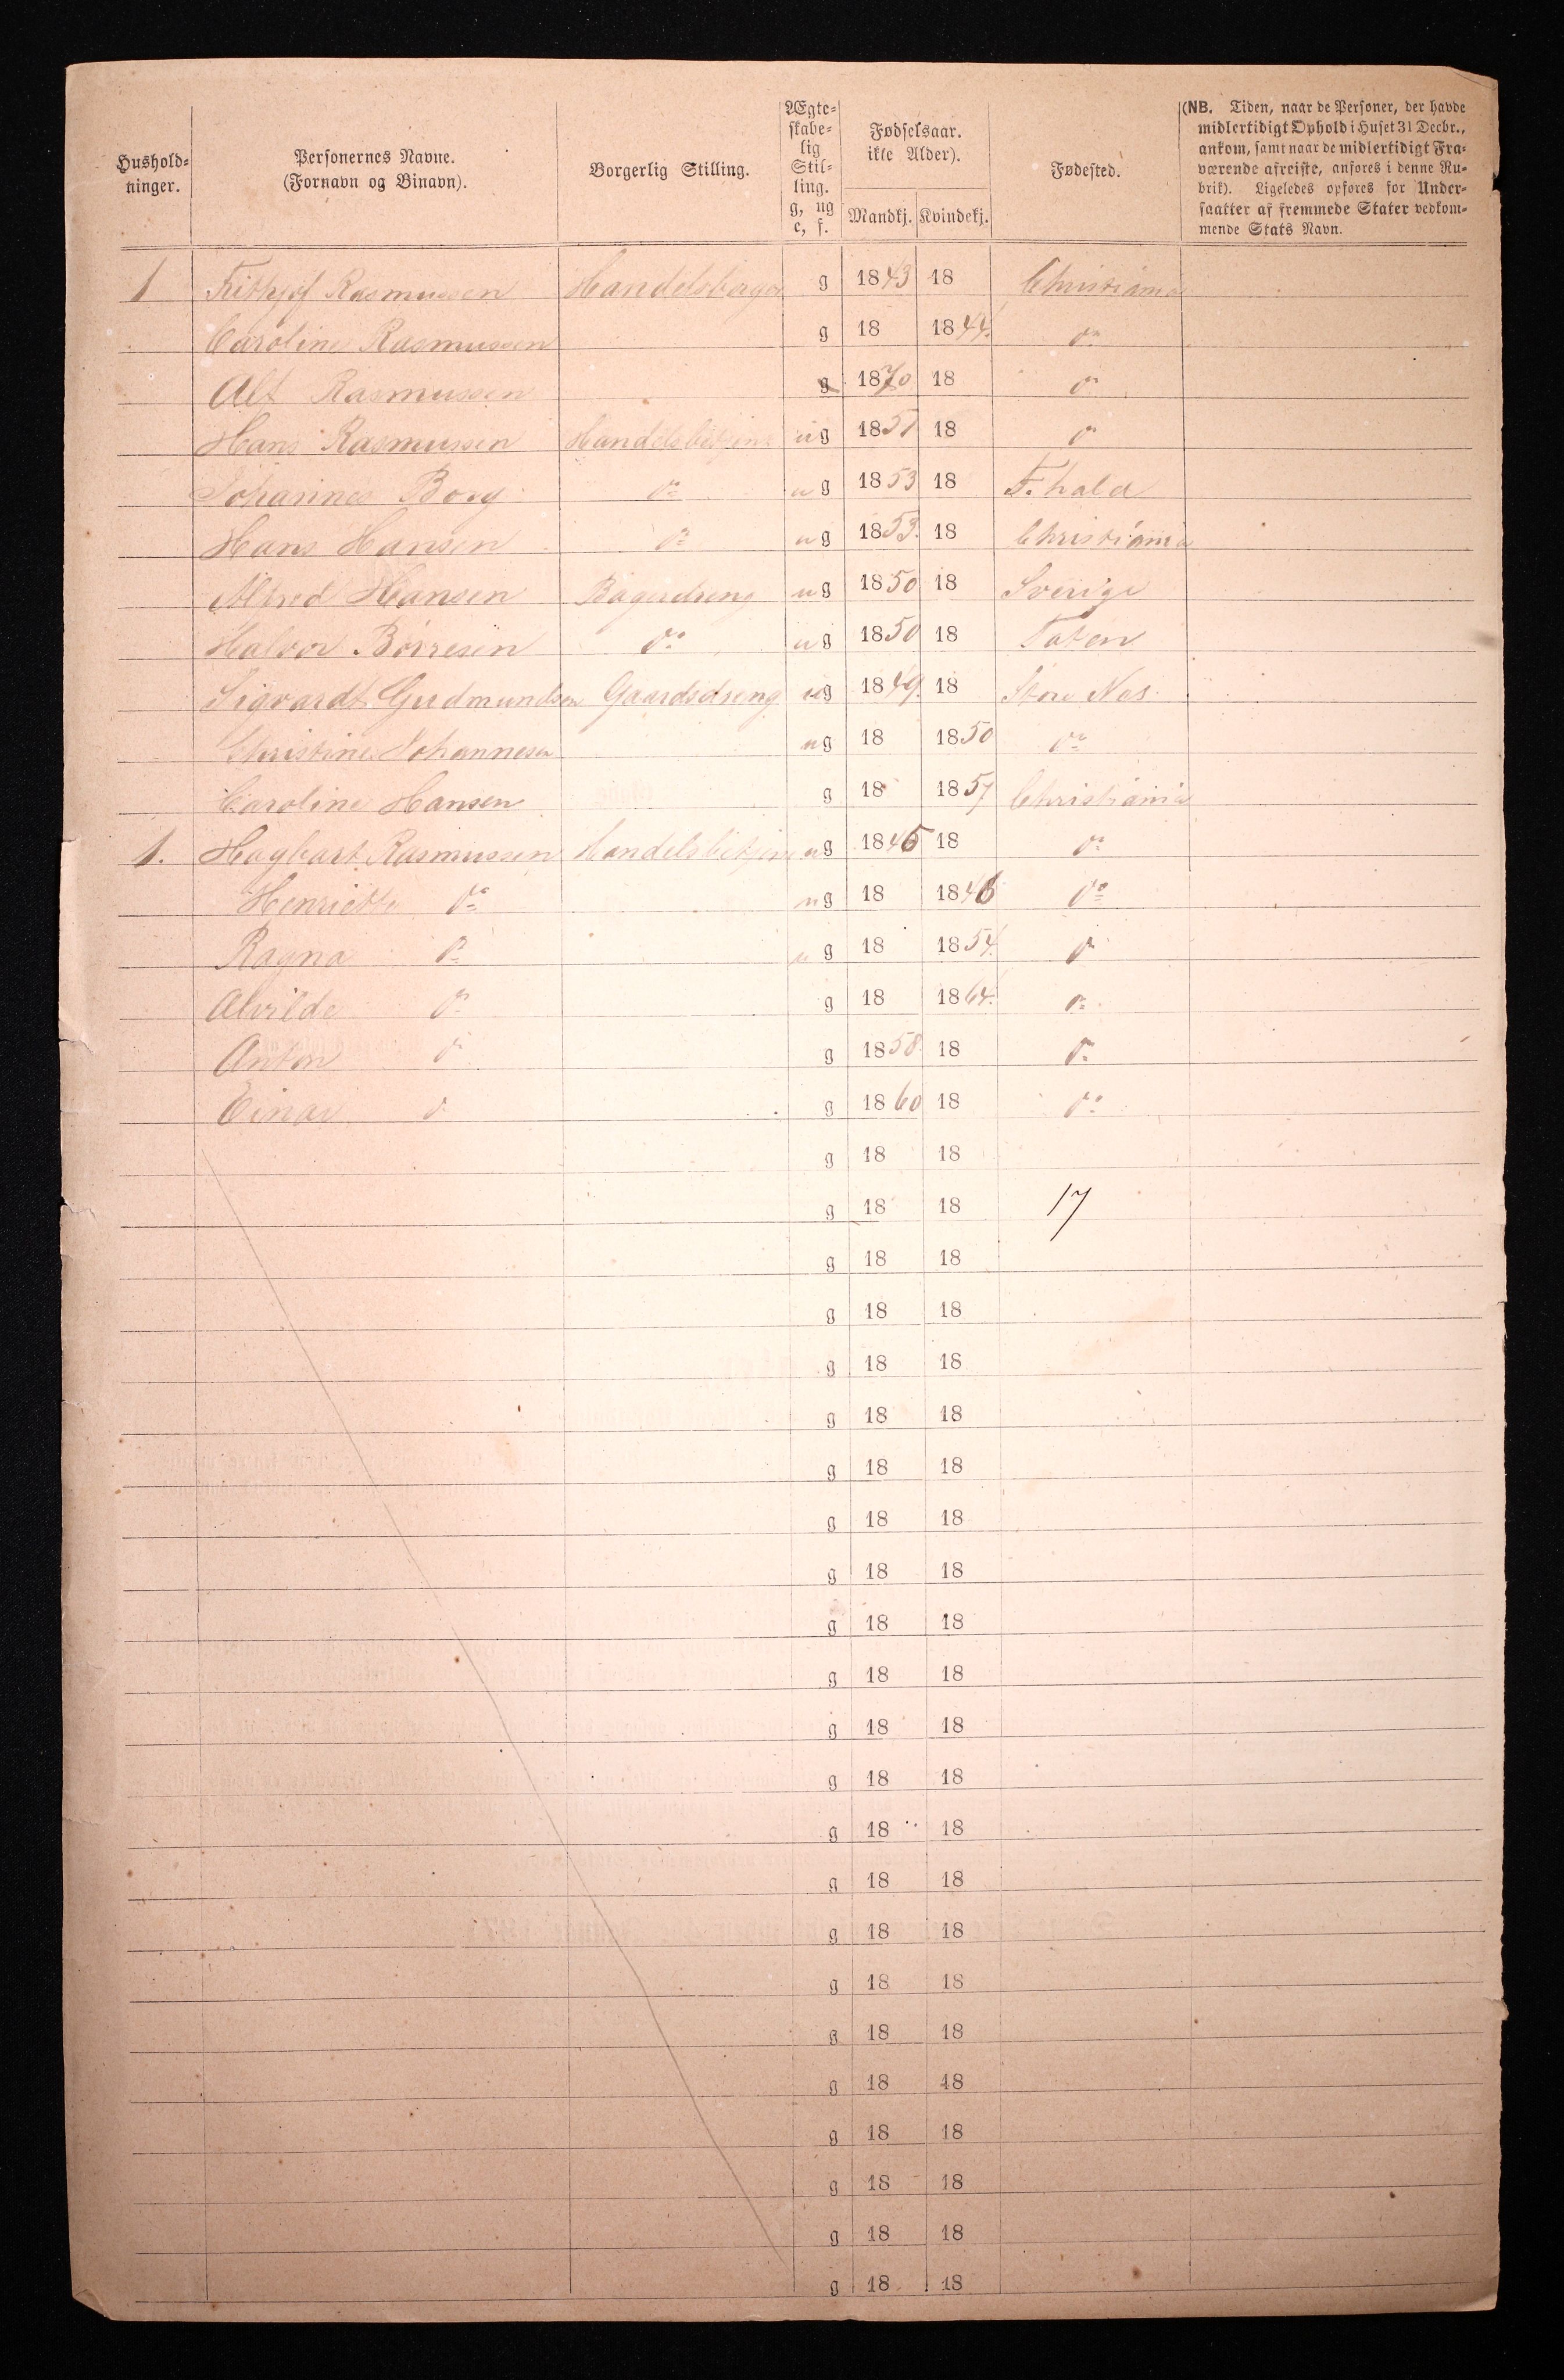 Hushold-
ninger.
Personernes Navne.
(Fornavn og Binavn).
Borgerlig Stilling.
Ægte-
skabe-
lig
Stil-
ling.
g, ug
e, f.
Fødselsaar.
ikke Alder).
Mandkj. Kvindekj.
Fødested.
(NB. Tiden, naar de Personer, der havde
midlertidigt Ophold i Huset 31 Decbr.,
ankom, samt naar de midlertidigt Fra-
værende afreiste, anføres i denne Ru-
brik). Ligeledes opføres for Under-
saatter af fremmede Stater vedkom-
mende Stats Navn.
1 Frithjof Rasmussen Handelsborger g 1843 18 Christiania
Caroline Rasmussen g 18 1844. do
Alf Rasmussen g 1870 18 do
Hans Rasmussen Handelsbetjent ug 1851 18 do
Johannes Borg do ug 1853 18 F.hald
Hans Hansen do ug 1853. 18 Christiania
Alfred Hansen Bagerdreng ug 1850 18 Sverige
Halvor Børresen do ug 1850 18 Toten
Sigvardt Gudmundsen Gaardsdreng ug 1849. 18 Store Nes
Christine Johannesen ug 18 1850 do
Caroline Hansen g 18 1857 Christiania
1. Hagbart Rasmussen Handelsbetjent ug 1845 18 do
Henriette do ug 18 1846 do
Ragna do ug 18 1854. do
Alvilde do g 18 1864. do
Anton do g 1858. 18 do
Einar do g 1860 18 do
g 18 18
g 18 18 17
g 18 18
g 18 18
g 18 18
g 18 18
g 18 18
g 18 18
g 18 18
g 18 18
g 18 18
g 18 18
g 18 18
g 18 18
g 18 18
g 18 18
g 18 18
g 18 18
g 18 18
g 18 18
g 18 18
g 18 18
g 18 18